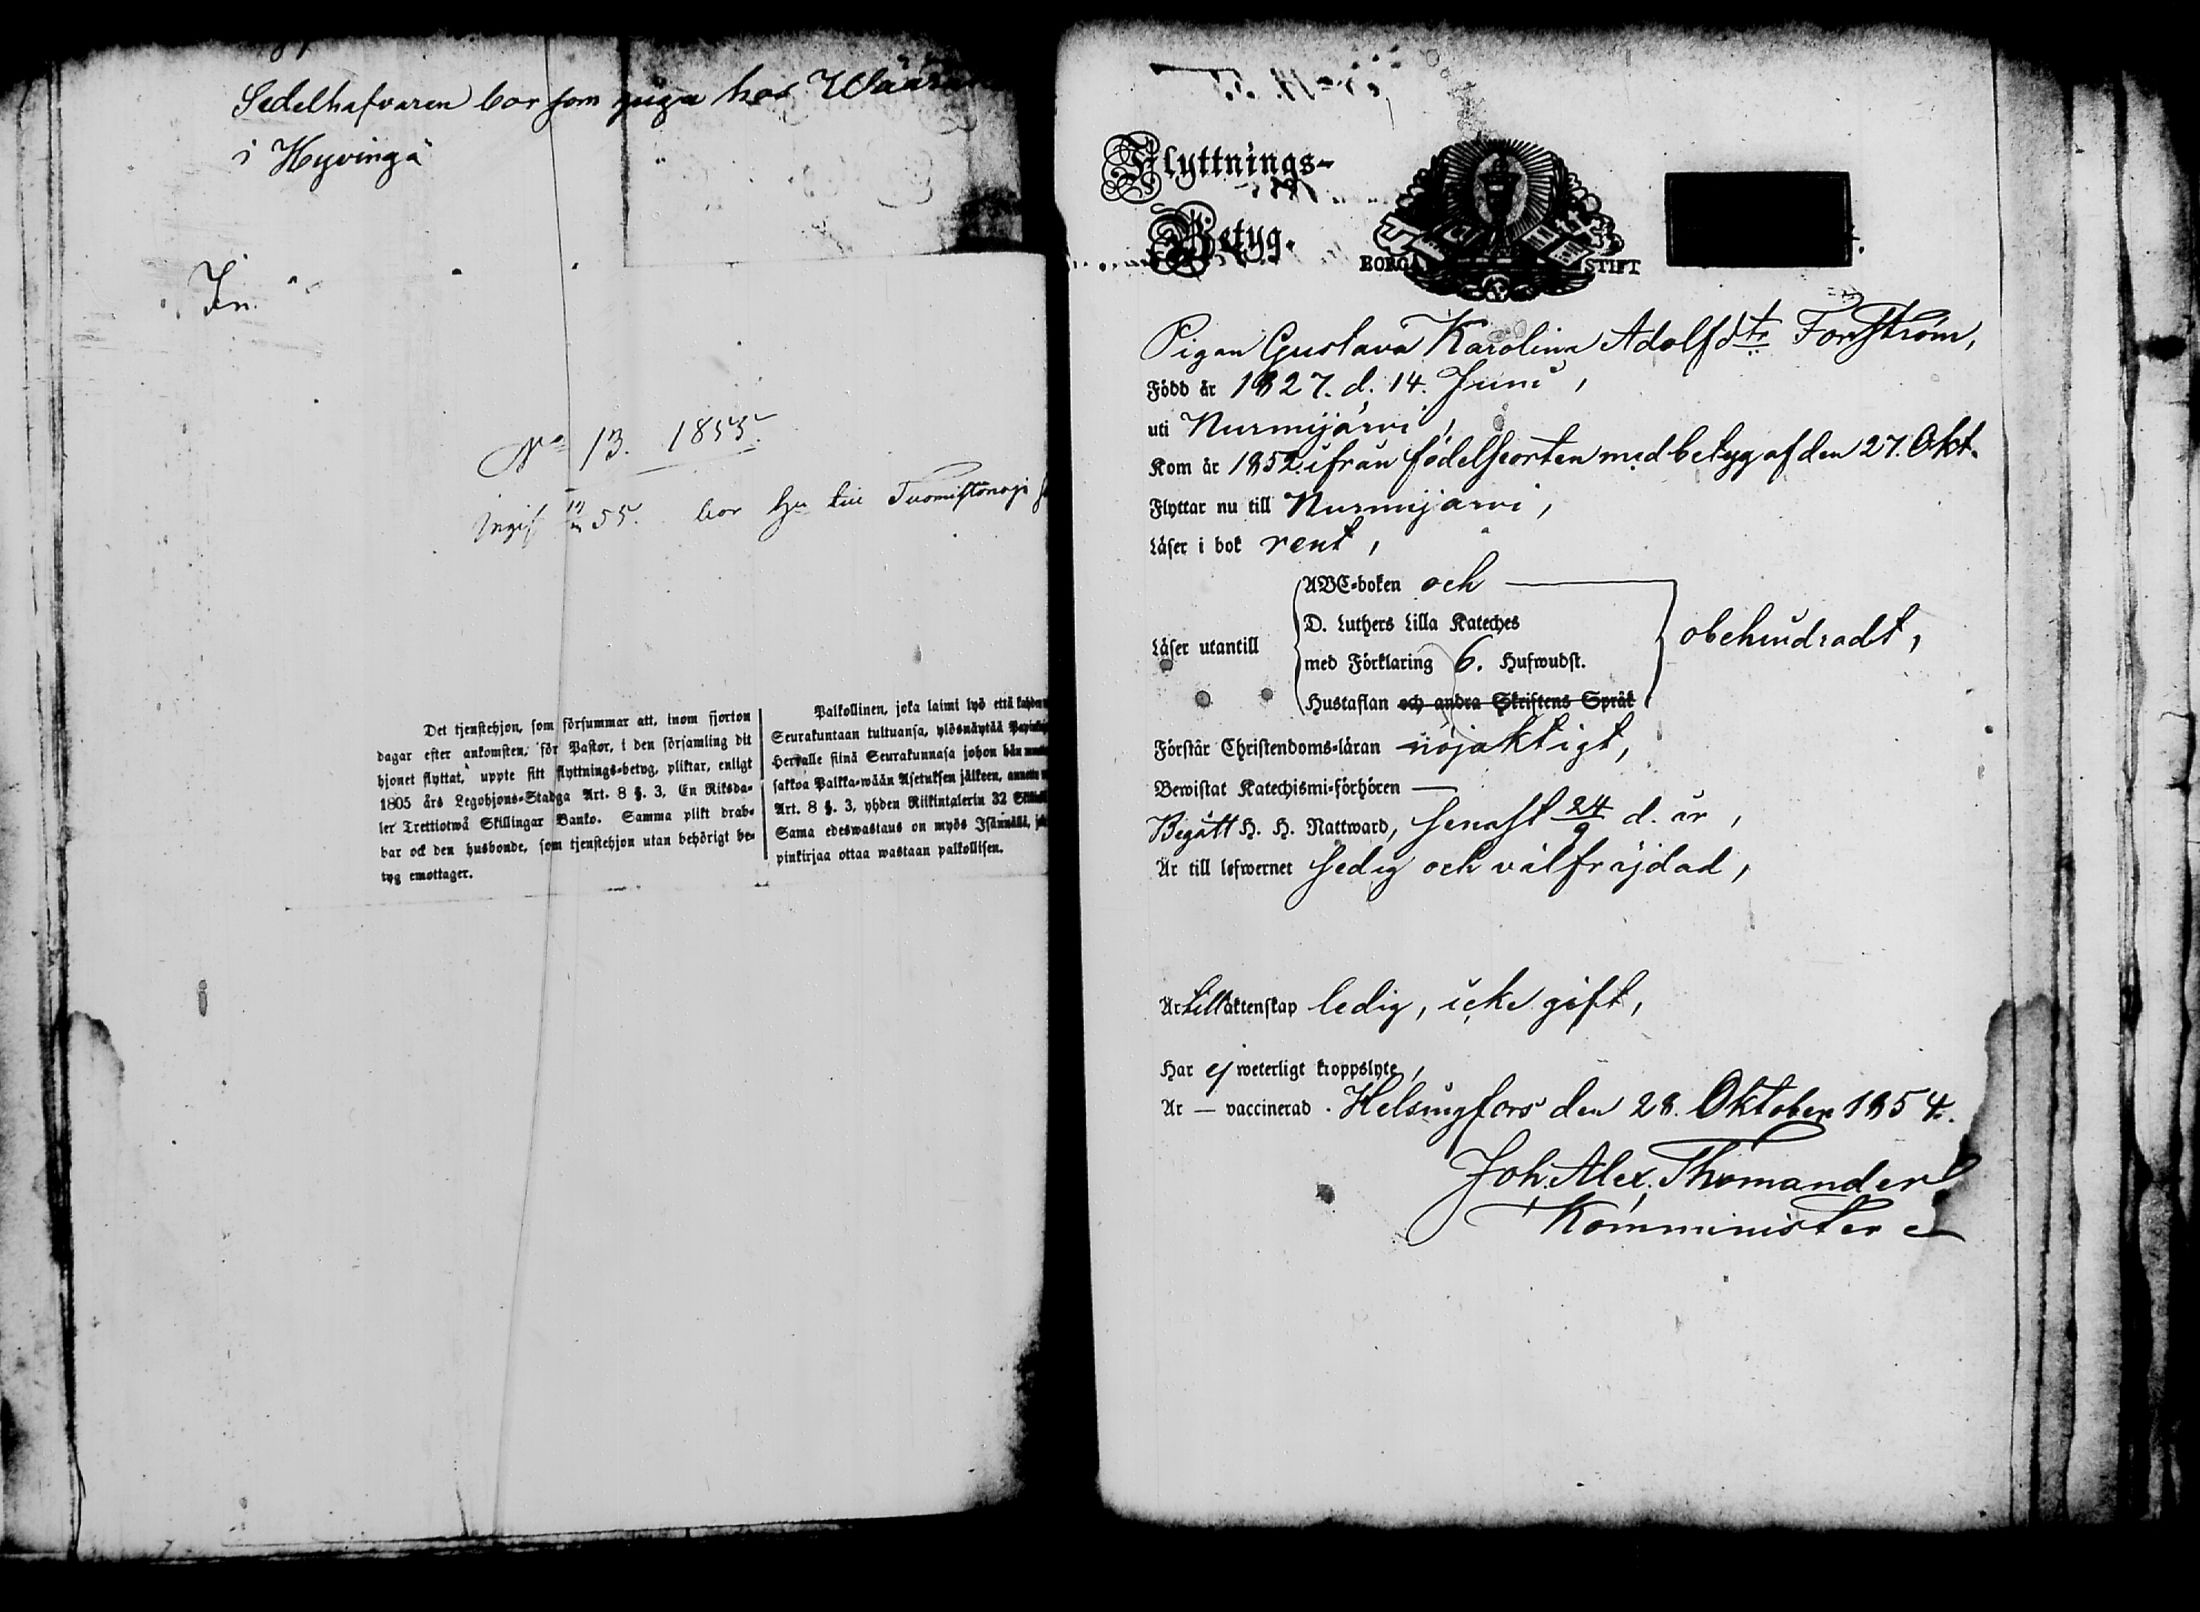 Sedelhafvaren bor som piga hos
i Hyvingä
No 13. 1855.
55. bor
Det tjenstehjon, som försummar att, inom fjorton
dagar efter ankomsten, för Pastor, i den församling dit
hjonet flyttat, uppte sitt flyttnings-betyg, pliktar, enligt
1805 års Legohjons-Stadga Art. 8 §. 3, En Riksda-
ler Trettiotwå Skillingar Banko. Samma plikt drab-
bar ock den husbonde, som tjenstehjon utan behörigt be-
tyg emottager.
Palkollinen, joka laimi lyö että
Seurakuntaan tultuansa, ylösnäytää
Herralle siinä Seurakunnasa johon hän
sakkoa Palkka-wään Asetuksen jälkeen,
Art. 8 §. 3, yhden Riikintalerin 32
Sama edeswastaus on myös Isännällä,
pinkirjaa ottaa wastaan palkollisen.
Flyttnings-
Betyg.
BORGÅ STIFT
Pigan Gustava Karolina Adolfsdtr Forsström,
Född år 1827. d. 14. Juni,
uti Nurmijärvi,
Kom år 1852. ifrån födelseorten med betyg af den 27. Okt.
Flyttar nu till Nurmijärvi,
Läser i bok rent,
Läser utantill
ABC-boken och
D. Luthers Lilla Kateches
med Förklaring 6. Hufwudst.
Hustaflan och andra Skriftens Språk
obehindradt,
Förstår Christendoms-läran nöjaktigt,
Bewistat Katechismi-förhören —
Begått H. H. Nattward, senast 24/9 d. år,
Är till lefwernet sedig och välfräjdad,
Är till äktenskap ledig, icke gift,
Har ej weterligt kroppslyte,
Är — vaccinerad. Helsingfors den 28. Oktober 1854.
Joh. Alex. Thomander
Komminister